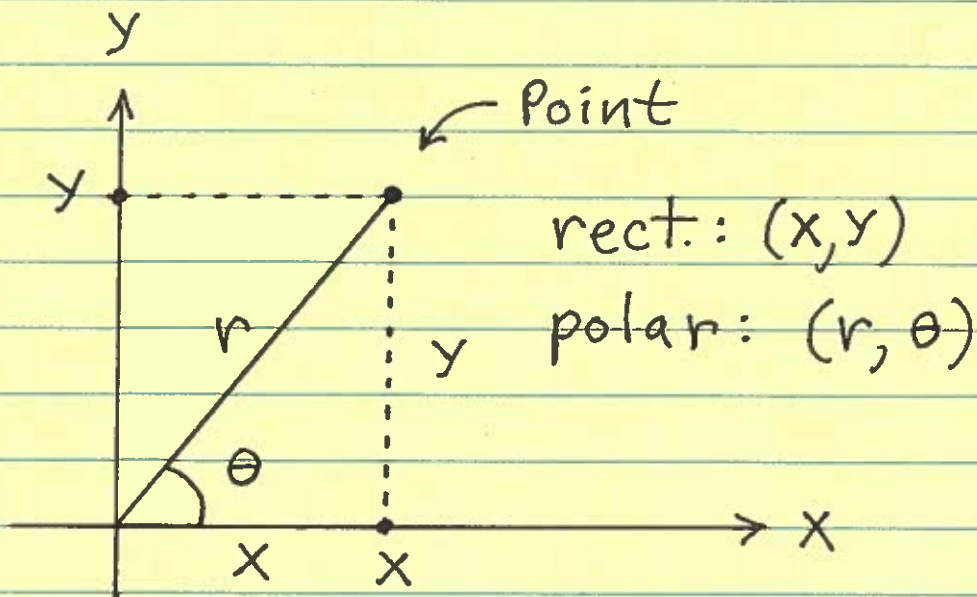 y
Point
y
rect.: (x,y)
r
y
polar: (r, θ)
θ
x
x
x